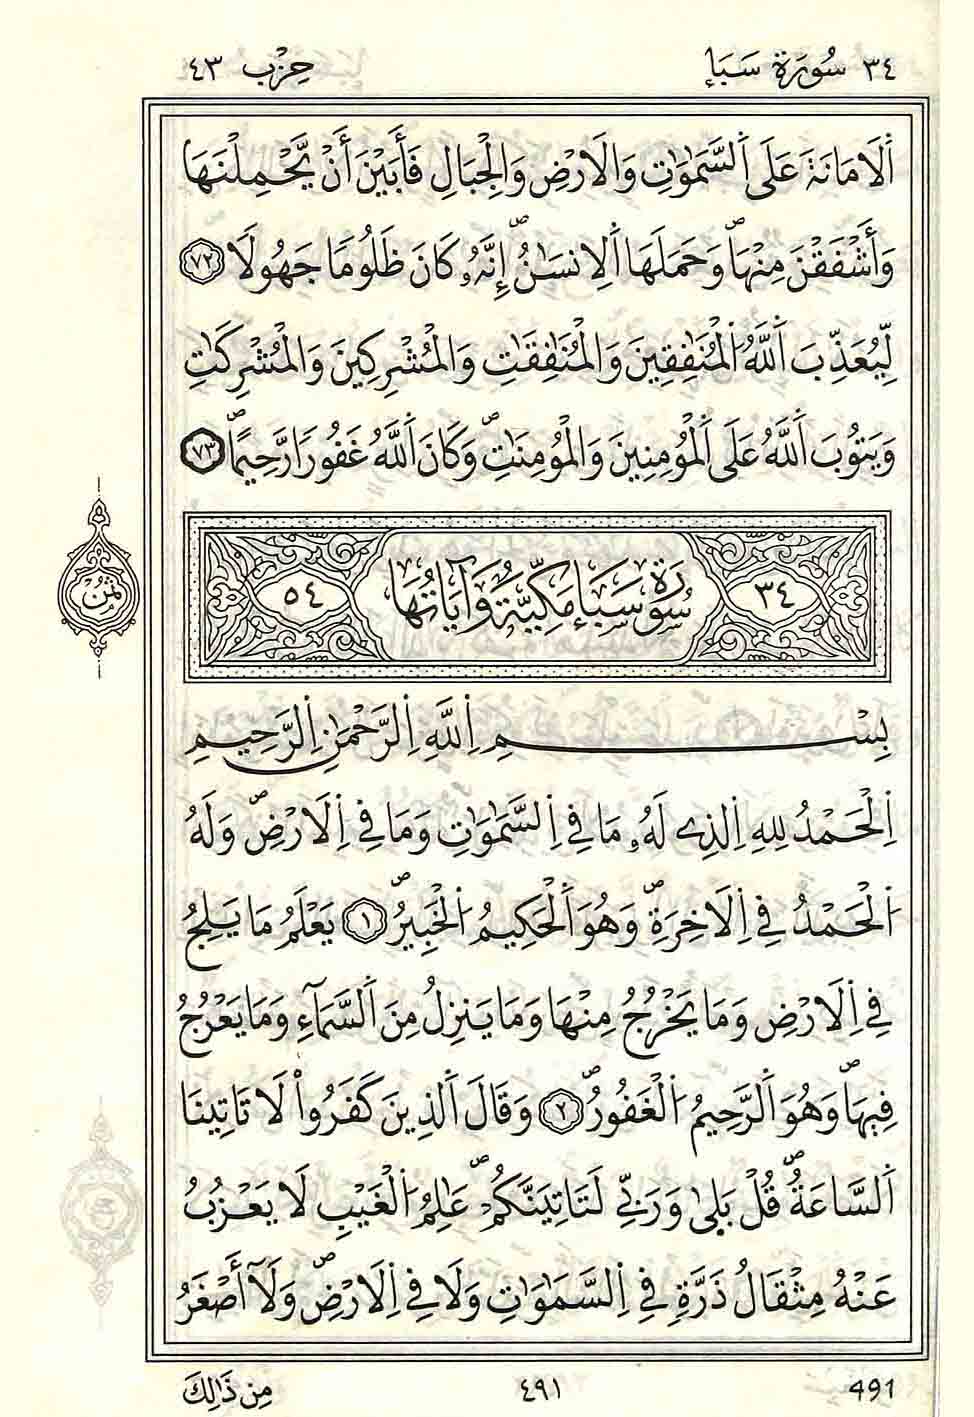 ٣٤ سُورَةُ سَبَإٍ حِزْب ٤٣
اَ۬لَامَانَةَ عَلَى اَ۬لسَّمَٰوَٰتِ وَالَارْضِ وَالْجِبَالِ فَأَبَيْنَ أَنْ يَّحْمِلْنَهَا
وَأَشْفَقْنَ مِنْهَاۖ وَحَمَلَهَا اَ۬لِانسَٰنُۖ إِنَّهُۥ كَانَ ظَلُومٗا جَهُولٗا ٧٢
لِّيُعَذِّبَ اَ۬للَّهُ اُ۬لْمُنَٰفِقِينَ وَالْمُنَٰفِقَٰتِ وَالْمُشْرِكِينَ وَالْمُشْرِكَٰتِ
وَيَتُوبَ اَ۬للَّهُ عَلَى اَ۬لْمُومِنِينَ وَالْمُومِنَٰتِۖ وَكَانَ اَ۬للَّهُ غَفُورٗا رَّحِيماٗۖ ٧٣
ثُمُن
٣٤ سُورَةُ سَبَإٍ مَكِّيَّةٌ وَآيَاتُهَا ٥٤
بِسْمِ اِ۬للَّهِ اِ۬لرَّحْمَٰنِ اِ۬لرَّحِيمِ
اِ۬لْحَمْدُ لِلهِ اِ۬لذِے لَهُۥ مَا فِے اِ۬لسَّمَٰوَٰتِ وَمَا فِے اِ۬لَارْضِۖ وَلَهُ
اُ۬لْحَمْدُ فِے اِ۬لَاخِرَةِۖ وَهُوَ اَ۬لْحَكِيمُ اُ۬لْخَبِيرُۖ ١ يَعْلَمُ مَا يَلِجُ
فِے اِ۬لَارْضِ وَمَا يَخْرُجُ مِنْهَا وَمَا يَنزِلُ مِنَ اَ۬لسَّمَآءِ وَمَا يَعْرُجُ
فِيهَاۖ وَهُوَ اَ۬لرَّحِيمُ اُ۬لْغَفُورُۖ ٢ وَقَالَ اَ۬لذِينَ كَفَرُواْ لَا تَاتِينَا
اَ۬لسَّاعَةُۖ قُلْ بَلَىٰ وَرَبِّے لَتَاتِيَنَّكُمْۖ عَٰلِمُ اُ۬لْغَيْبِ لَا يَعْزُبُ
عَنْهُ مِثْقَالُ ذَرَّةٖ فِے اِ۬لسَّمَٰوَٰتِ وَلَا فِے اِ۬لَارْضِۖ وَلَآ أَصْغَرُ
491 ٤٩١ مِن ذَٰلِكَ